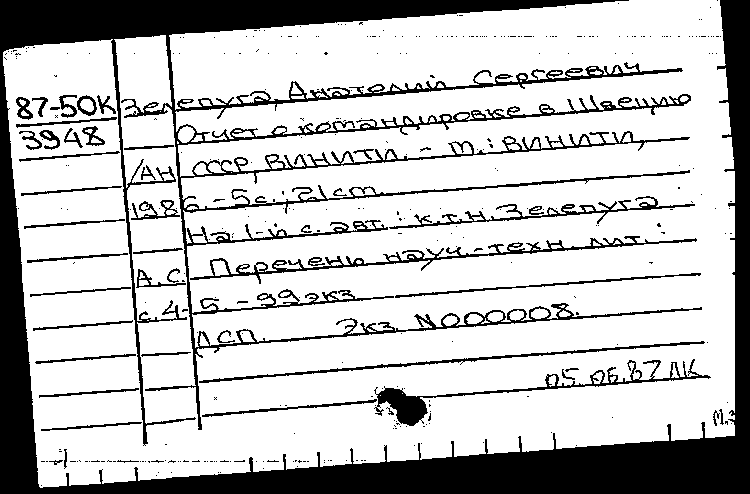 87-50К Зелепуга, Анатолий Сергеевич
3948 Отчет о командировке в Швецию
/АН СССР, ВИНИТИ. - М.: ВИНИТИ,
1986. - 5с.; 21см.
На 1-й с. авт.: к.т.н. Зелепуга
А.С. Перечень науч.-техн. лит.:
с.4-5. - 99экз
ДСП. Экз. N000008.
05.06.87 ЛК